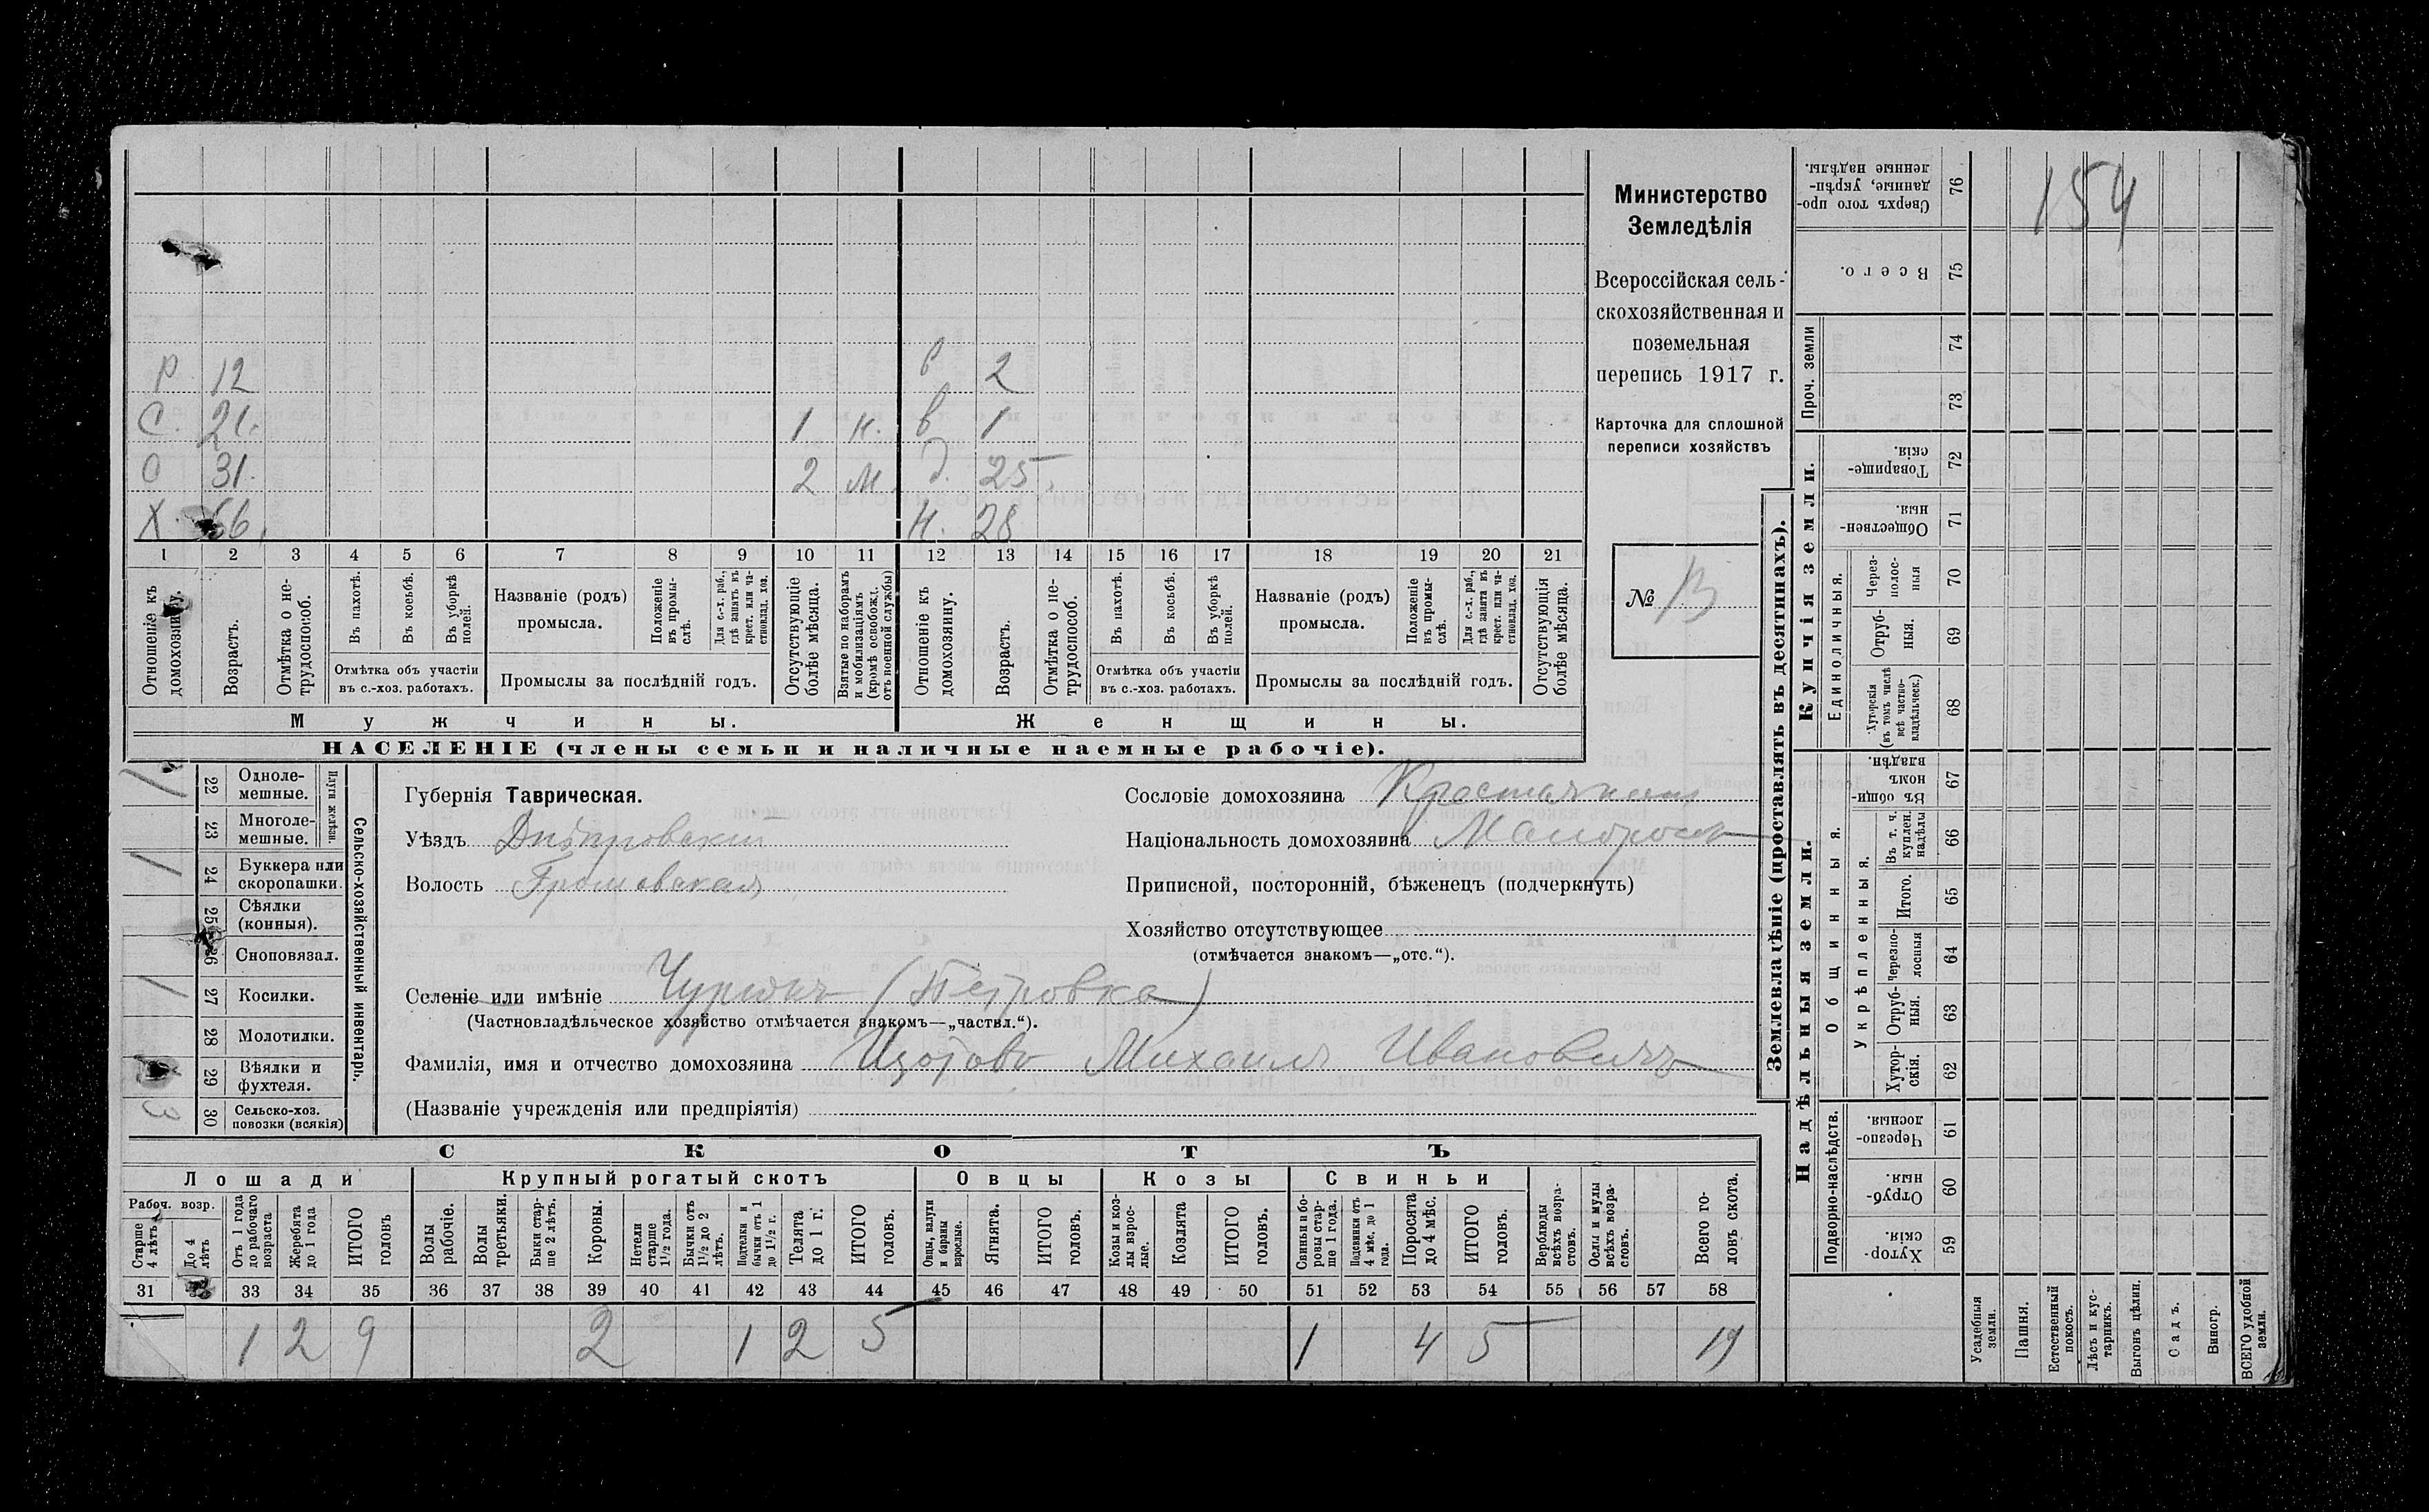 154
Министерство
Земледѣлія
Всероссійская сель-
скохозяйственная и
поземельная
перепись 1917 г.
Карточка для сплошной
переписи хозяйствъ
№ 13
Р 12 в 2
С. 21. 1 н. в 1
С 31. 2 м. д. 25.
Х. 66. н. 28
1 2 3 4 5 6 7 8 9 10 11 12 13 14 15 16 17 18 19 20 21
Отношеніе къ домохозяину.
Возрастъ.
Отмѣтка о не-трудоспособ.
Въ пахотѣ.
Въ косьбѣ.
Въ уборкѣ полей.
Отмѣтка объ участіи
въ с.-хоз. работахъ.
Названіе (родъ)
промысла.
Положеніе въ промы-слѣ.
Для с.-х. раб., гдѣ занятъ въ крест. или ча-стновлад. хоз.
Промыслы за послѣдній годъ.
Отсутствующіе болѣе мѣсяца.
Взятые по наборамъ и мобилизаціямъ (кромѣ освобожд. отъ военной службы)
Отношеніе къ домохозяину.
Возрастъ.
Отмѣтка о не-трудоспособ.
Въ пахотѣ.
Въ косьбѣ.
Въ уборкѣ полей.
Отмѣтка объ участіи
въ с.-хоз. работахъ.
Названіе (родъ)
промысла.
Положеніе въ промы-слѣ.
Для с.-х. раб., гдѣ занята въ крест. или ча-стновлад. хоз.
Промыслы за послѣдній годъ.
Отсутствующія болѣе мѣсяца.
Мужчины. Женщины.
НАСЕЛЕНІЕ (члены семьи и наличные наемные рабочіе).
Сельско-хозяйственный инвентарь.
Плуги желѣзн.
22 Одноле-мешные. 1
23 Многоле-мешные.
24 Буккера или скоропашки. 1
25 Сѣялки (конныя).
26 Сноповязал.
27 Косилки. 1
28 Молотилки.
29 Вѣялки и фухтеля.
30 Сельско-хоз. повозки (всякія)
Губернія Таврическая.
Уѣздъ Днѣпровскій
Волость Громовская
Сословіе домохозяина Крестьянинъ
Національность домохозяина Малороссъ
Приписной, посторонній, бѣженецъ (подчеркнуть)
Хозяйство отсутствующее
(отмѣчается знакомъ—„отс.“).
Селеніе или имѣніе Чурюкъ (Петровка)
(Частновладѣльческое хозяйство отмѣчается знакомъ—„частвл.“).
Фамилія, имя и отчество домохозяина Изотовъ Михаилъ Ивановичъ
(Названіе учрежденія или предпріятія)
СКОТЪ
Лошади Крупный рогатый скотъ Овцы Козы Свиньи
Рабоч. возр.
Старше 4 лѣтъ
До 4 лѣтъ
Отъ 1 года до рабочаго возраста
Жеребята до 1 года
ИТОГО головъ
Волы рабочіе.
Волы третьяки.
Быки стар-ше 2 лѣтъ.
Коровы.
Нетели старше 1½ года.
Бычки отъ 1½ до 2 лѣтъ.
Подтелки и бычки отъ 1 до 1½ г.
Телята до 1 г.
ИТОГО головъ.
Овцы, валухи и бараны взрослые.
Ягнята.
ИТОГО головъ.
Козы и коз-лы взрос-лые.
Козлята
ИТОГО головъ.
Свиньи и бо-ровы стар-ше 1 года.
Подсвинки отъ 4 мѣс. до 1 года.
Поросята до 4 мѣс.
ИТОГО головъ.
Верблюды всѣхъ возра-стовъ.
Ослы и мулы всѣхъ возра-стовъ.
Всего го-ловъ скота.
31 33 34 35 36 37 38 39 40 41 42 43 44 45 46 47 48 49 50 51 52 53 54 55 56 57 58
1 2 9 2 1 2 5 1 4 5 19
Землевладѣніе (проставлять въ десятинахъ).
Надѣльныя земли. Купчія земли.
Проч. земли
Подворно-наслѣдств.
Общинныя.
Укрѣпленныя.
Единоличныя.
Сверхъ того про-данные, укрѣп-ленные надѣлы. 76
Всего. 75
74
73
Товарище-скія. 72
Обществен-ныя. 71
Через-полос-ныя 70
Отруб-ныя. 69
Хуторскія (въ томъ числѣ всѣ частно-владѣльческ.) 68
Въ общи-номъ владѣн. 67
Въ т. ч. куплен. надѣлы 66
Итого. 65
Черезпо-лосныя 64
Отруб-ныя. 63
Хутор-скія. 62
Черезпо-лосныя. 61
Отруб-ныя. 60
Хутор-скія. 59
Усадебныя земли.
Пашня.
Естественный покосъ.
Лѣсъ и кус-тарникъ.
Выгонъ цѣлин.
Садъ.
Виногр.
ВСЕГО удобной земли.